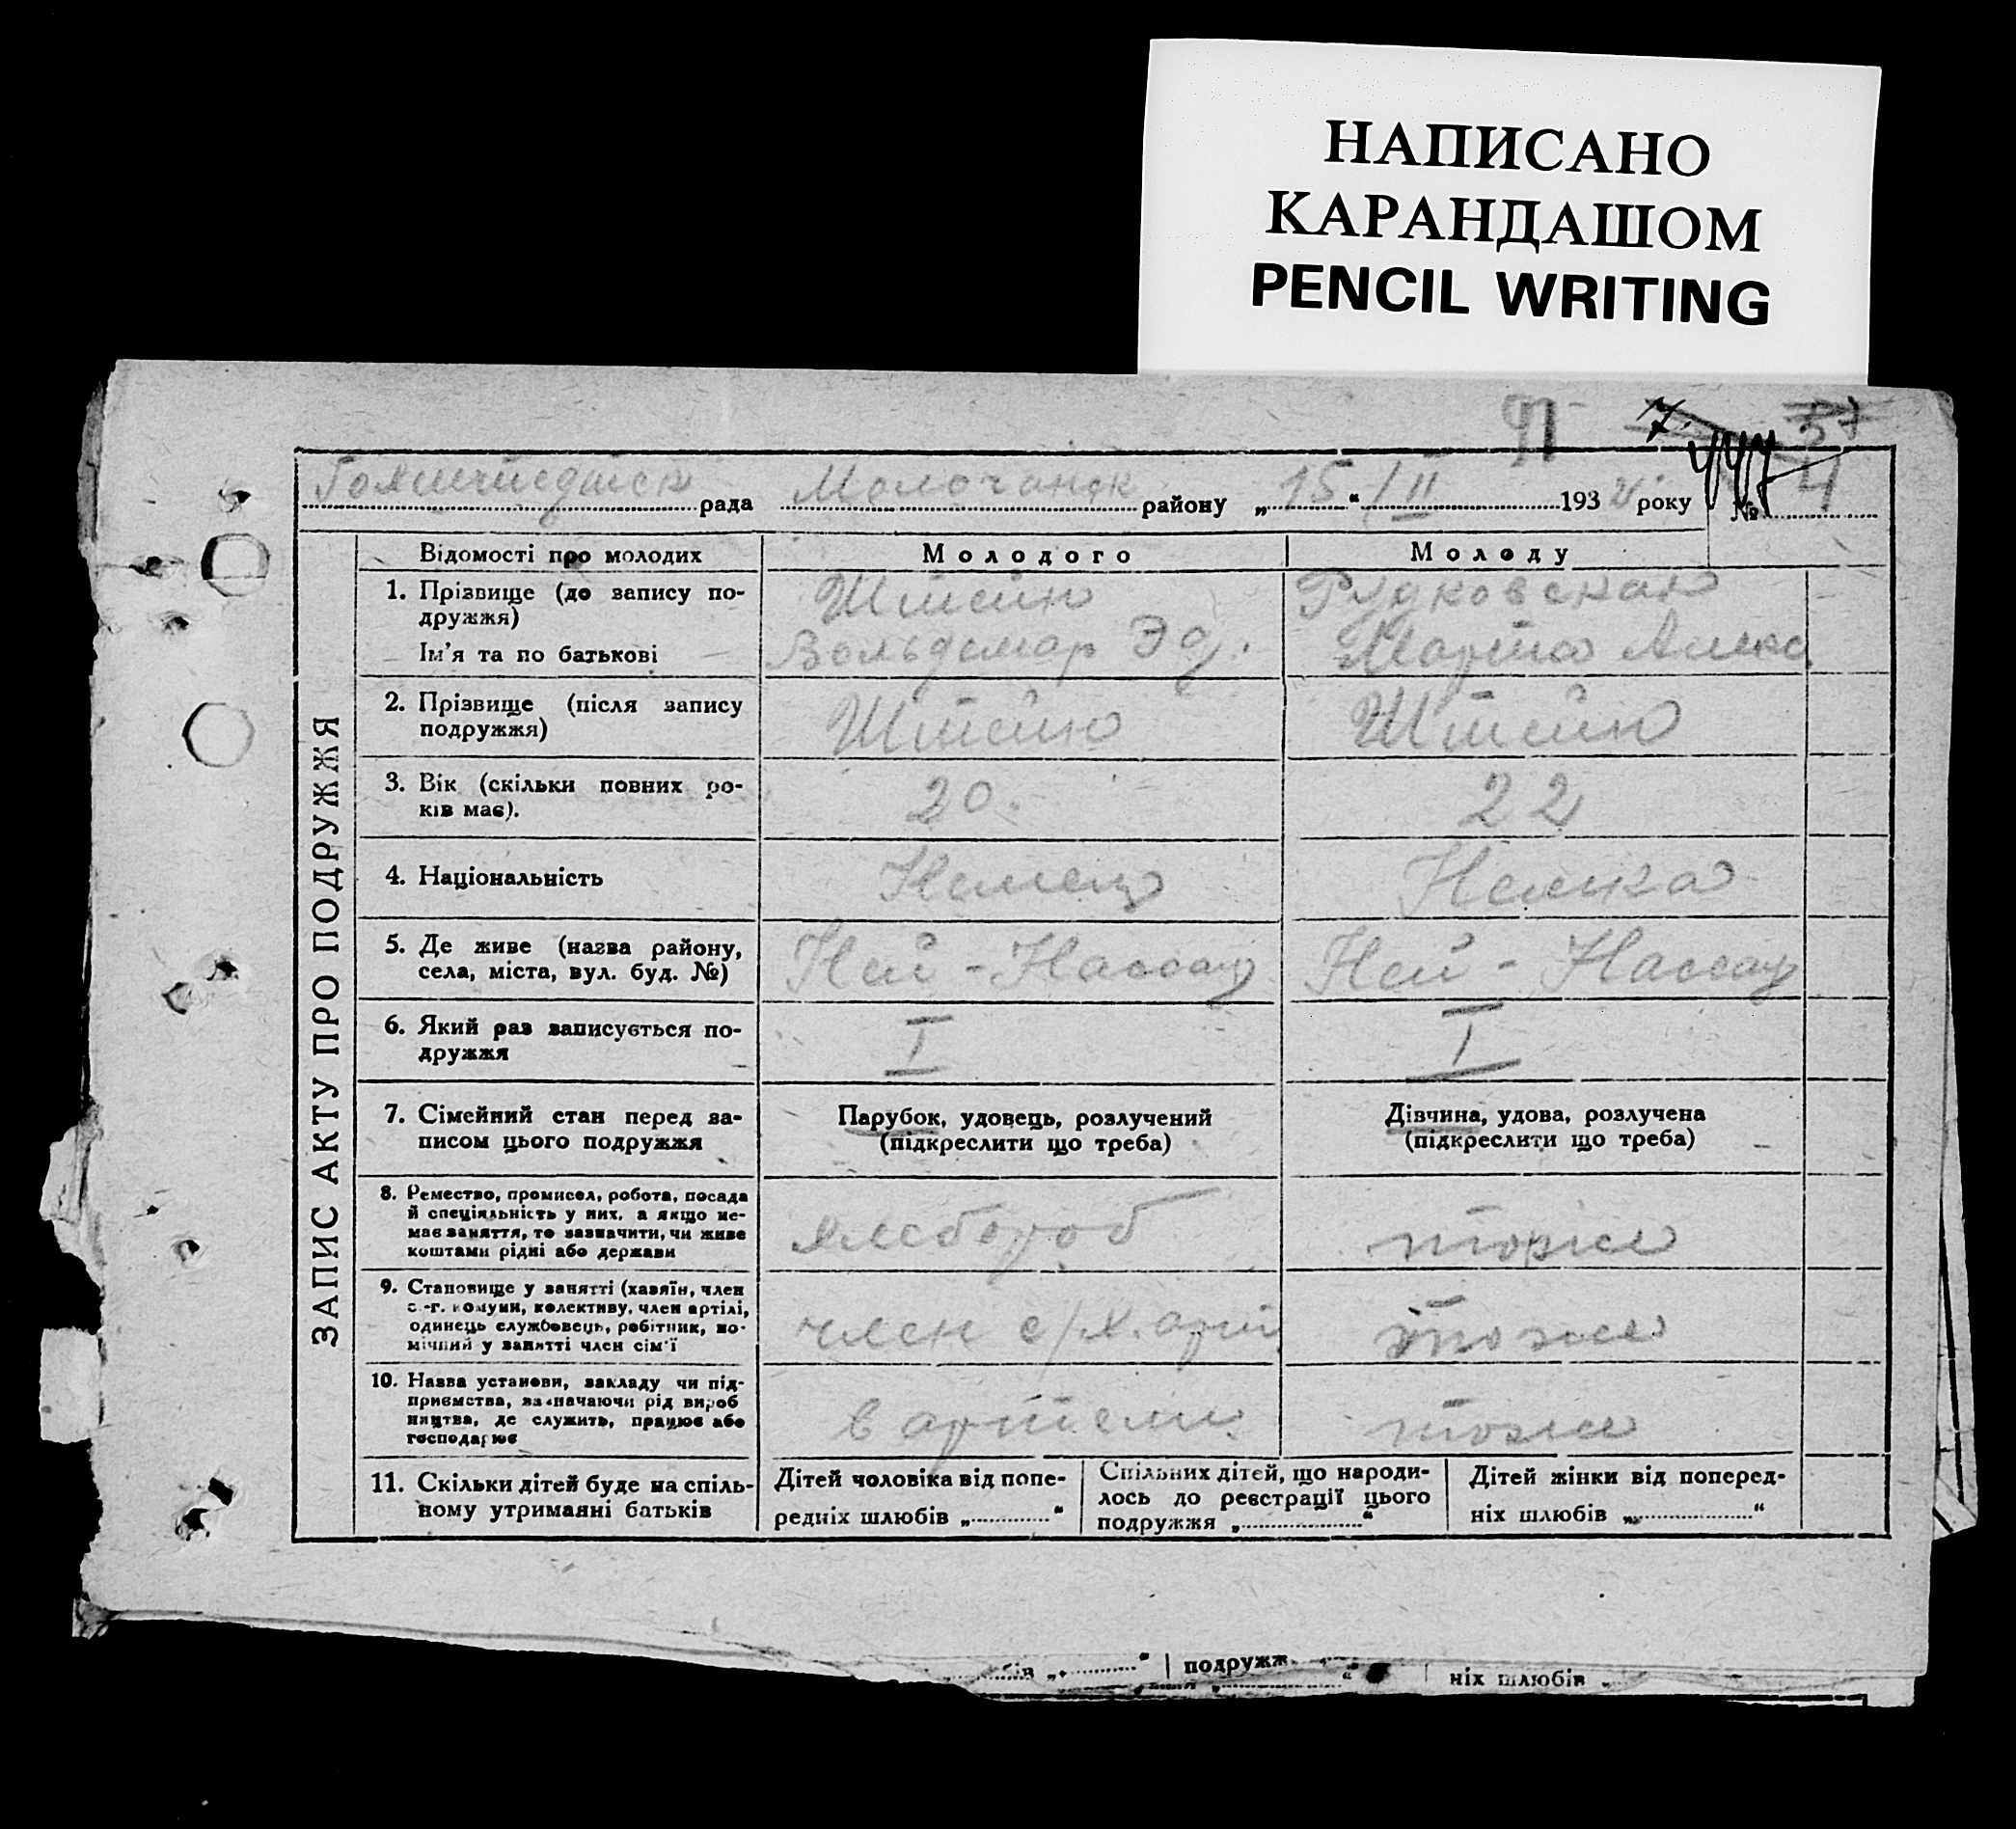 НАПИСАНО
КАРАНДАШОМ
PENCIL WRITING
91 7. 57
рада Молочанск району „15“ III 193 року № 4
ЗАПИС АКТУ ПРО ПОДРУЖЖЯ
Відомості про молодих Молодого Молоду
1. Прізвище (до запису по-
дружжя)
Штейн Рудковская
Ім'я та по батькові Вольдемар Эд. Марта Алекс.
2. Прізвище (після запису
подружжя)
Штейн Штейн
3. Вік (скільки повних ро-
ків має).
20. 22
4. Національність Немец Немка
5. Де живе (назва району,
села, міста, вул. буд. №)
Ней-Нассау Ней-Нассау
6. Який раз записується по-
дружжя
I I
7. Сімейний стан перед за-
писом цього подружжя
Парубок, удовець, розлучений
(підкреслити що треба)
Дівчина, удова, розлучена
(підкреслити що треба)
8. Ремество, промисел, робота, посада
й спеціяльність у них, а якщо не-
має заняття, то зазначити, чи живе
коштами рідні або держави
хлебороб тоже
9. Становище у занятті (хазяїн, член
с.-г. комуни, колективу, член артілі,
одинець службовець, робітник, по-
мічний у занятті член сім'ї
член с/х. арт тоже
10. Назва установи, закладу чи під-
приємства, зазначаючи рід вироб
ництва, де служить, працює або
господарює
в артели. тоже
11. Скільки дітей буде на спіль-
ному утриманні батьків
Дітей чоловіка від попе-
редніх шлюбів „ “
Спільних дітей, що народи-
лось до реєстрації цього
подружжя „ “
Дітей жінки від поперед-
ніх шлюбів „ “
подружж
ніх шлюбів „